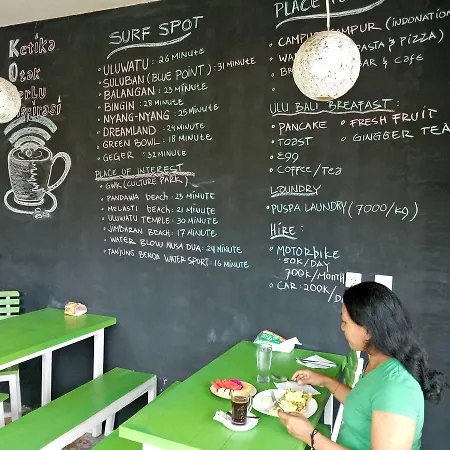 Ketika
Otak
Perlu
Inspirasi
SURF SPOT
ULUWATU - 26 MINUTE
SULUBAN (BLUE POINT) : 31 MINUTE
BALANGAN : 23 MINUTE
BINGIN : 28 MINUTE
NYANG-NYANG : 25 MINUTE
DREAMLAND : 24 MINUTE
GREEN BOWL : 18 MINUTE
GEGER : 32 MINUTE
PLACE OF INTEREST
GWK (CULTURE PARK)
PANDAWA BEACH : 23 MINUTE
MELASTI BEACH : 21 MINUTE
ULUWATU TEMPLE : 30 MINUTE
JIMBARAN BEACH : 17 MINUTE
WATER BLOW NUSA DUA : 24 MINUTE
TANJUNG BENOA WATER SPORT : 16 MINUTE
PLACE
CAMPUR (INDONATION
PASTA & PIZZA)
BAR & Cafe
ULU BALI BREAKFAST :
PANCAKE
FRESH FRUIT
TOAST
GINGEER TEA
EGG
COFFEE/TEA
LAUNDRY
PUSPA LAUNDRY (7000/KG)
HIRE :
MOTORBIKE
50K/DAY
700K/MONTH
CAR : 200K/D